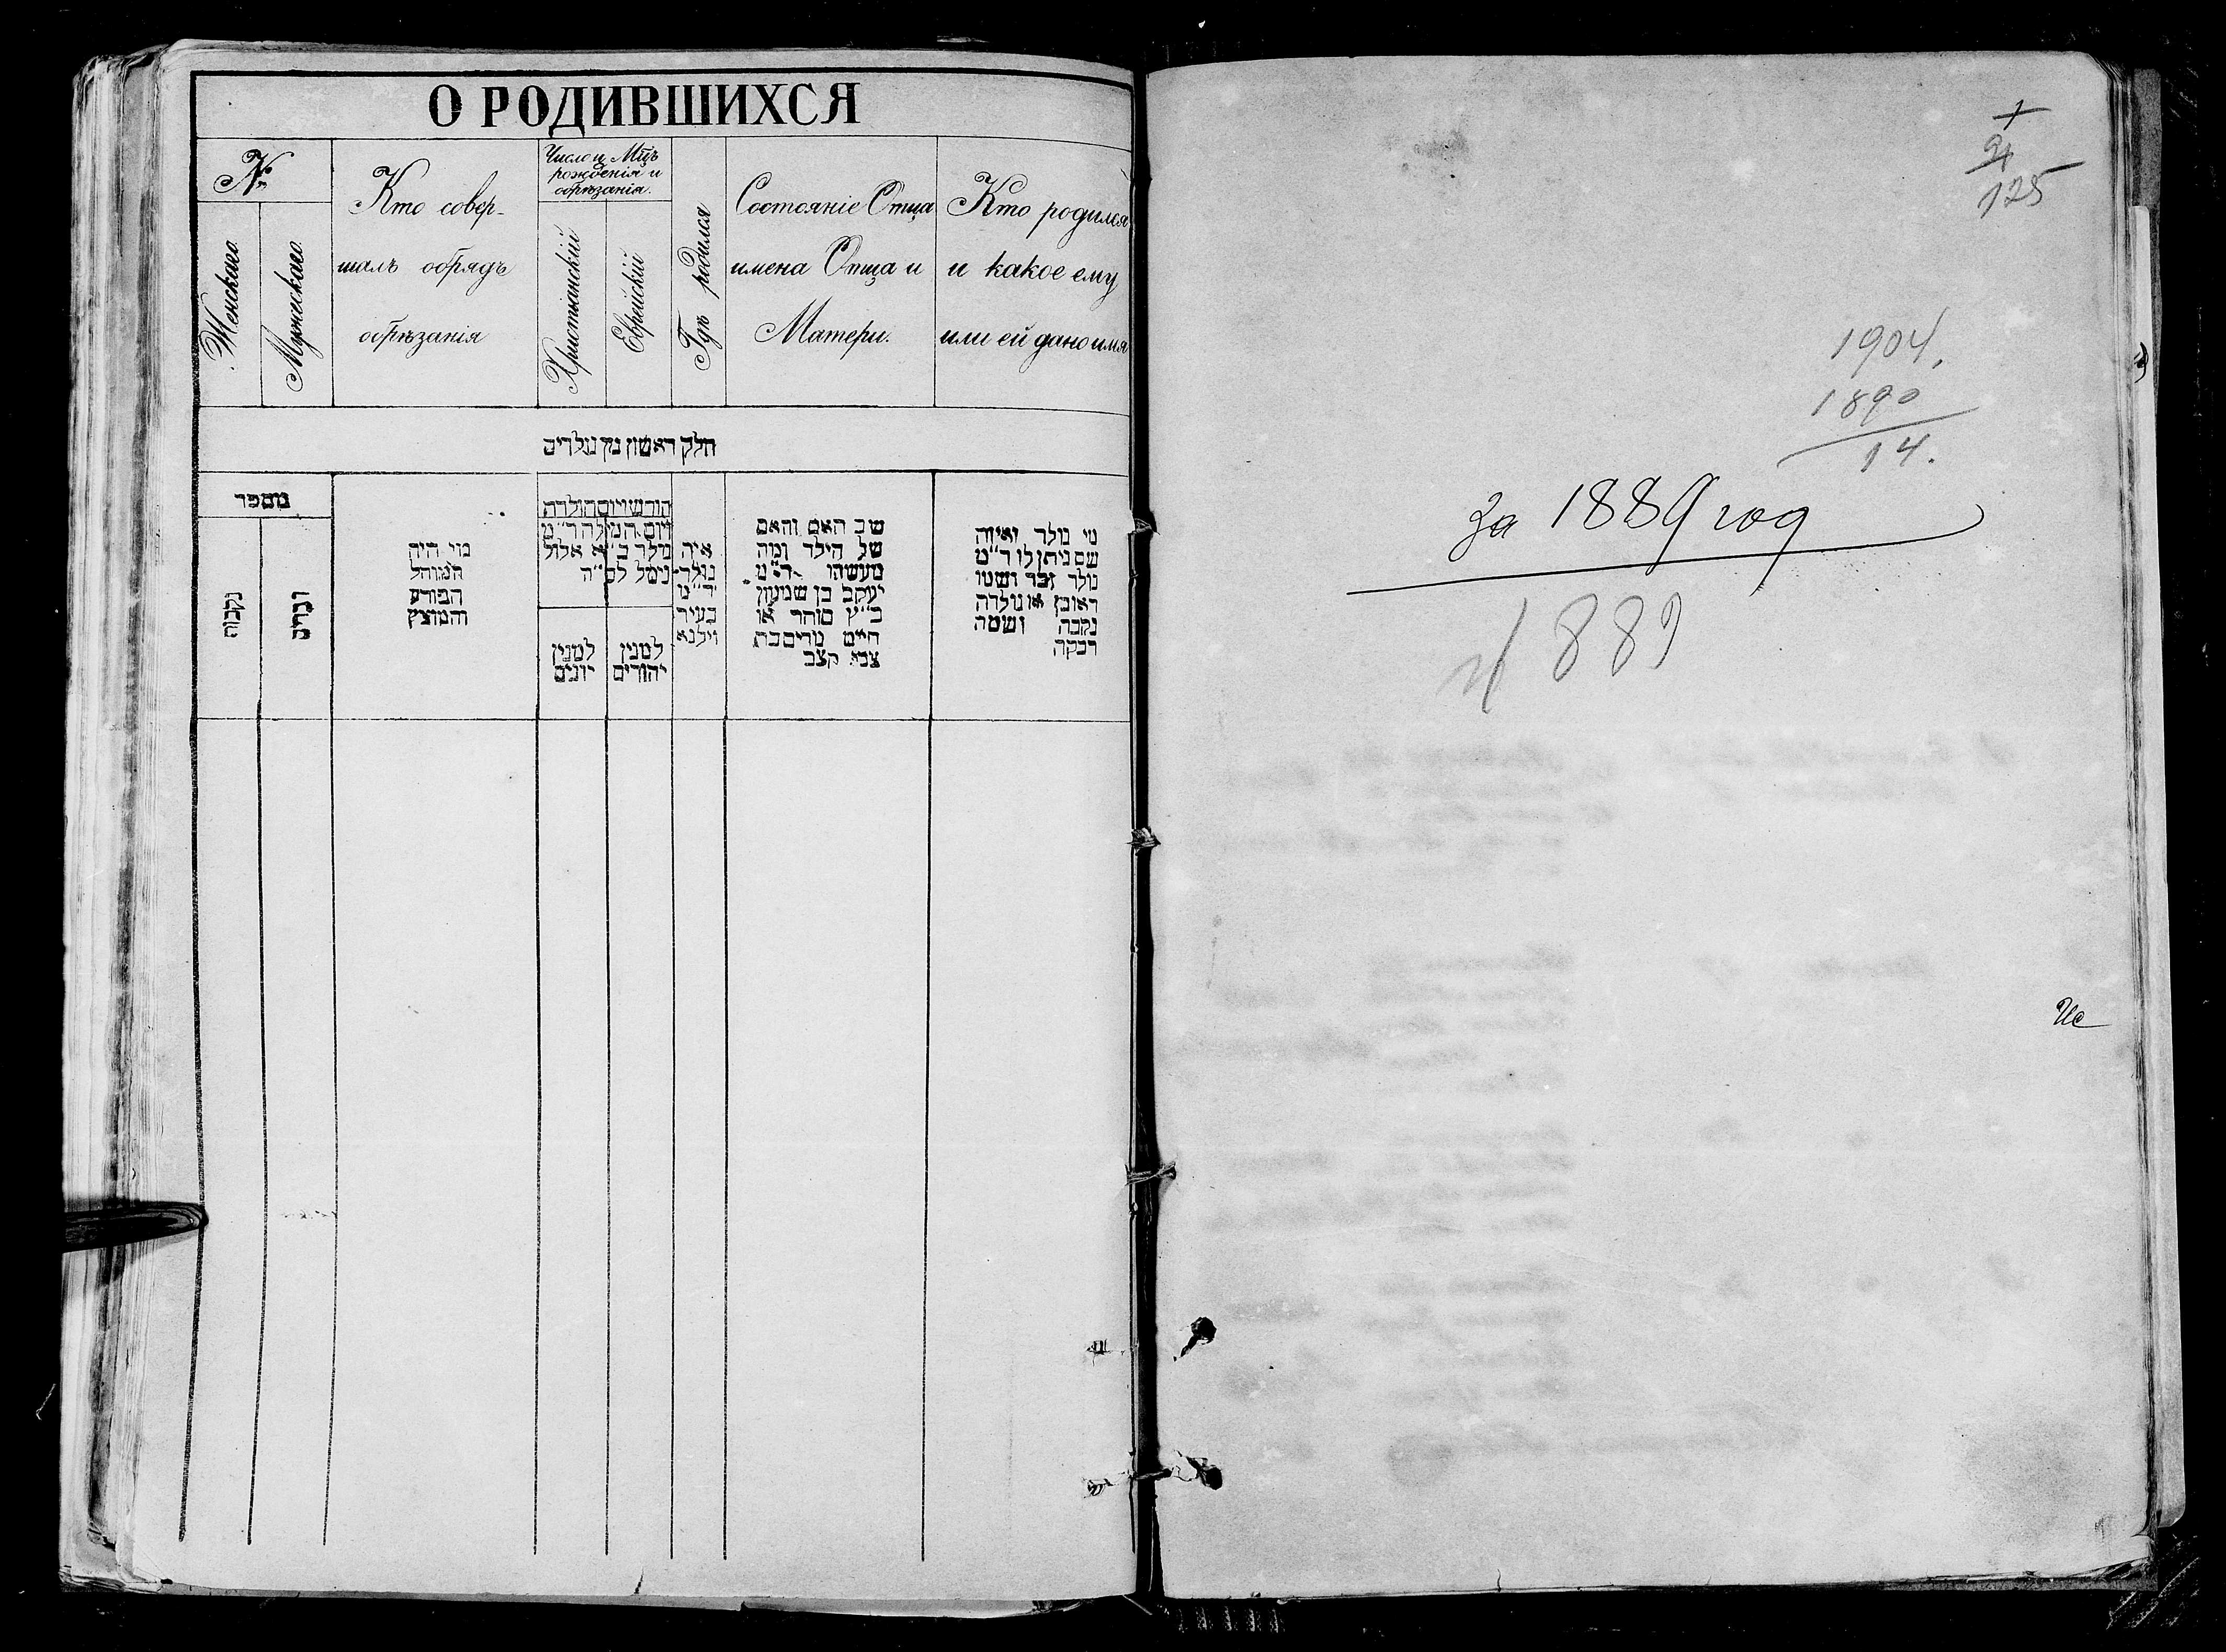 О РОДИВШИХСЯ
№
Женскаго.
Мужескаго.
Кто совер-
шалъ обрядъ
обрѣзанія
Число и Мцъ
рожденія и
обрѣзанія.
Христіанскій
Еврейскій
Гдѣ родился
Состояніе Отца
имена Отца и
Матери.
Кто родился
и какое ему
или ей дано имя
חלק ראשון מן נולדים
מספר
נקבות
זכרים
מי היה
המוהל
הפורע
והמוצץ
חודש ויום הולדת
ויום המילה ד״מ
נולד כ״א אלול
נימל לס״ה
למנין
יונים
למנין
יהודים
איה
נולד
ד״מ
בעיר
ווילנא
שב האם והאם
של הילד ומה
מעשהו ד״מ
יעקב בן שמעון
כ״ץ סוחר או
חיים מרים בת
צבי קצב
מי נולד ואיזה
שם ניתן לו ד״מ
נולד זכר ושמו
ראובן או נולדה
נקבה ושמה
רבקה
125
1904.
1890
14.
за 1889 год
1889
Ис